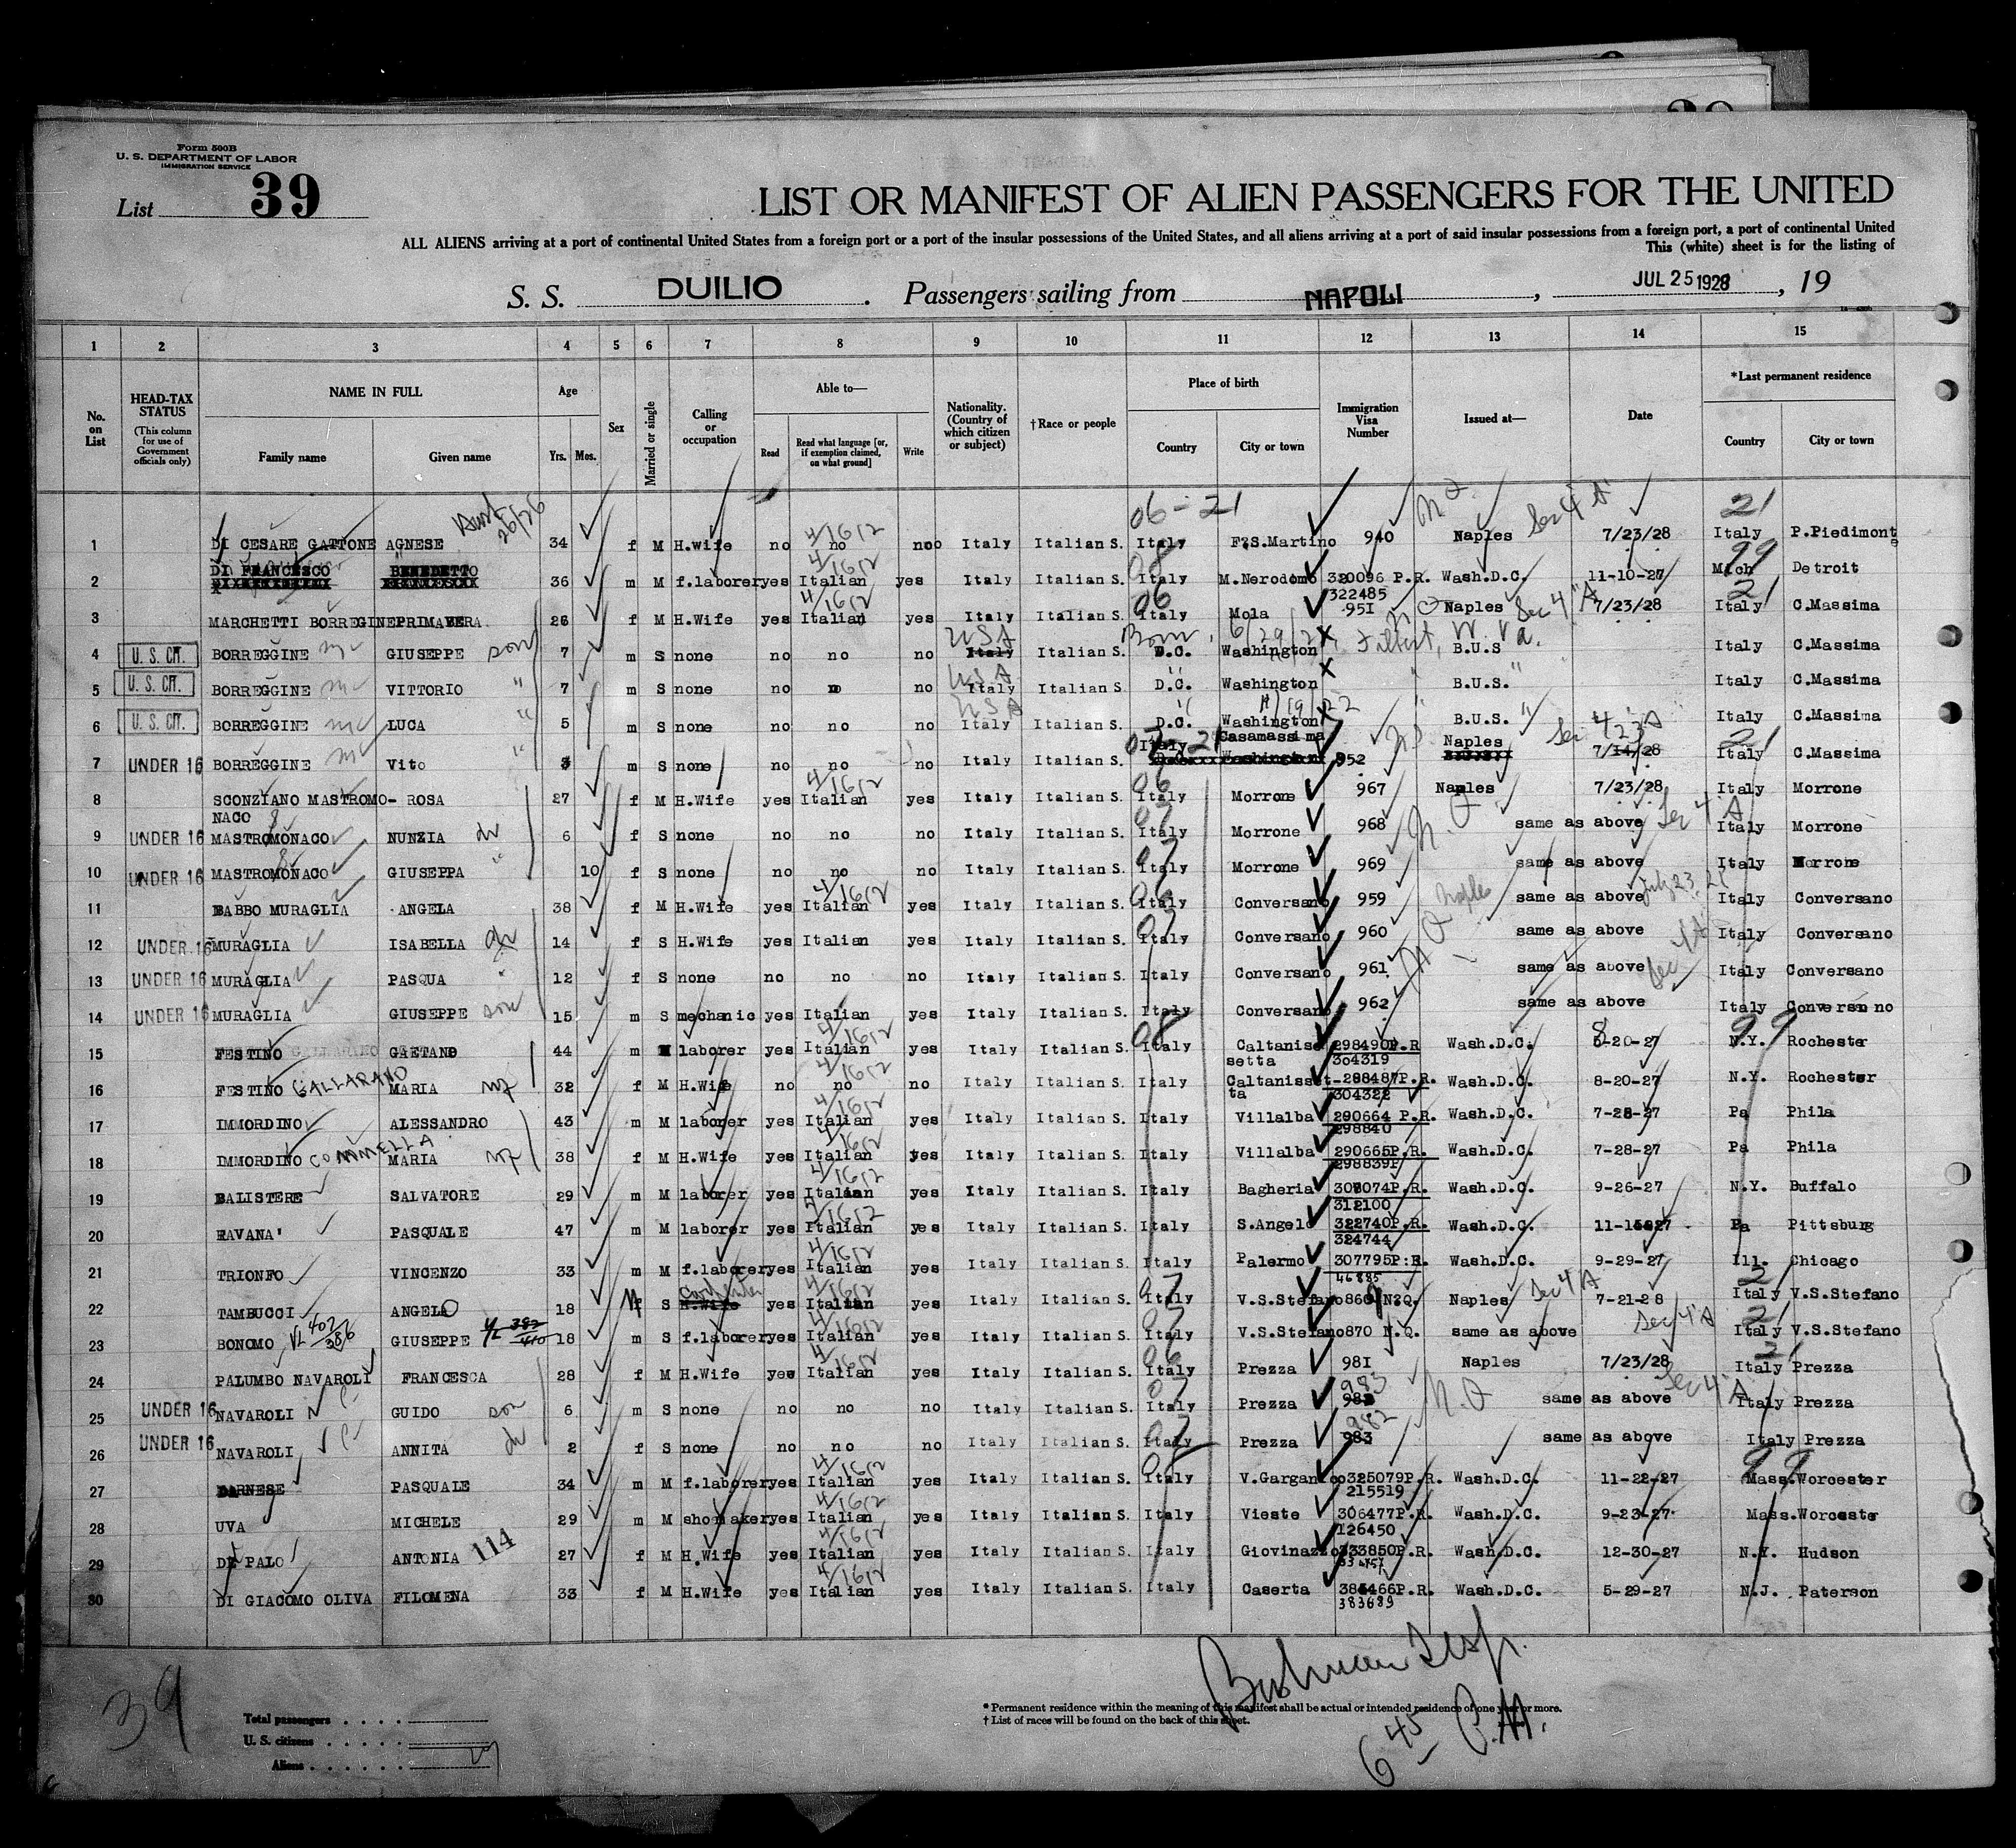 Form 500B
U. S. DEPARTMENT OF LABOR
IMMIGRATION SERVICE
List 39
LIST OR MANIFEST OF ALIEN PASSENGERS FOR THE UNITED
ALL ALIENS arriving at a port of continental United States from a foreign port or a port of the insular possessions of the United States, and all aliens arriving at a port of said insular possessions from a foreign port, a port of continental United
This (white) sheet is for the listing of
S. S. DUILIO . Passengers sailing from NAPOLI , JUL 25 1928 , 19
1 2 3 4 5 6 7 8 9 10 11 12 13 14 15
No. on List
HEAD-TAX STATUS (This column for use of Government officials only)
NAME IN FULL Family name Given name
Age Yrs. Mos.
Sex
Married or single
Calling or occupation
Able to— Read Read what language [or, if exemption claimed, on what ground] Write
Nationality. (Country of which citizen or subject)
†Race or people
Place of birth Country City or town
Immigration Visa Number
Issued at—
Date
*Last permanent residence Country City or town
06-21 21
1 DI CESARE GATTONE AGNESE 34 f M H.wife no no no Italy Italian S. Italy F.S.Martino 940 Naples Sec 4 A 7/23/28 Italy P.Piedimonte
2 DI FRANCESCO BENEDETTO 36 m M f.laborer yes Italian yes Italy Italian S. Italy M.Nerodomo 320096 P.R. 322485 Wash.D.C. 11-10-27 Mich Detroit
3 MARCHETTI BORREGINE PRIMAVERA 26 f M H.Wife yes Italian yes Italy Italian S. Italy Mola 951 Naples Sec 4 A 7/23/28 Italy C.Massima
4 U. S. CIT. BORREGGINE GIUSEPPE son 7 m S none no no no Italy USA Italian S. D.C. Washington B.U.S Italy C.Massima
5 U. S. CIT. BORREGGINE VITTORIO " 7 m S none no no no Italy USA Italian S. D.C. Washington B.U.S. Italy C.Massima
6 U. S. CIT. BORREGGINE LUCA " 5 m S none no no no Italy USA Italian S. D.C. Washington B.U.S. Italy C.Massima
7 UNDER 16 BORREGGINE Vito " 3 m S none no no no Italy Italian S. Italy Casamassima 952 Naples 7/14/28 Italy C.Massima
8 SCONZIANO MASTROMO-NACO ROSA 27 f M H.Wife yes Italian yes Italy Italian S. Italy Morrone 967 Naples 7/23/28 Italy Morrone
9 UNDER 16 MASTROMONACO NUNZIA 6 f S none no no no Italy Italian S. Italy Morrone 968 same as above Italy Morrone
10 UNDER 16 MASTROMONACO GIUSEPPA 10 f S none no no no Italy Italian S. Italy Morrone 969 same as above Italy Morrone
11 BABBO MURAGLIA ANGELA 38 f M H.Wife yes Italian yes Italy Italian S. Italy Conversano 959 same as above Italy Conversano
12 UNDER 16 MURAGLIA ISABELLA 14 f S H.Wife yes Italian yes Italy Italian S. Italy Conversano 960 same as above Italy Conversano
13 UNDER 16 MURAGLIA PASQUA 12 f S none no no no Italy Italian S. Italy Conversano 961 same as above Italy Conversano
14 UNDER 16 MURAGLIA GIUSEPPE son 15 m S mechanic yes Italian yes Italy Italian S. Italy Conversano 962 same as above Italy Conversano
15 FESTINO GAETANO 44 m M laborer yes Italian yes Italy Italian S. Italy Caltanissetta 298490P.R 304319 Wash.D.C. 8-20-27 N.Y. Rochester
16 FESTINO GALLARANO MARIA 32 f M H.Wife no no no Italy Italian S. Italy Caltanissetta 298487P.R. 304322 Wash.D.C. 8-20-27 N.Y. Rochester
17 IMMORDINO ALESSANDRO 43 m M laborer yes Italian yes Italy Italian S. Italy Villalba 290664 P.R. 298840 Wash.D.C. 7-28-27 Pa Phila
18 IMMORDINO COMMELLA MARIA 38 f M H.Wife yes Italian yes Italy Italian S. Italy Villalba 290665P.R. 298839P Wash.D.C. 7-28-27 Pa Phila
19 BALISTERE SALVATORE 29 m M laborer yes Italian yes Italy Italian S. Italy Bagheria 308074P.R. 312100 Wash.D.C. 9-26-27 N.Y. Buffalo
20 RAVANA' PASQUALE 47 m M laborer yes Italian yes Italy Italian S. Italy S.Angelo 322740P.R. 324744 Wash.D.C. Pa Pittsburg
21 TRIONFO VINCENZO 33 m M f.laborer yes Italian yes Italy Italian S. Italy Palermo 307795P.R. 46885 Wash.D.C. 9-29-27 Ill. Chicago
22 TAMBUCCI ANGELO 18 S yes Italian yes Italy Italian S. Italy V.S.Stefano 869 N.Q. Naples Sec 4 A 7-21-28 Italy V.S.Stefano
23 BONOMO GIUSEPPE 18 m S f.laborer yes Italian yes Italy Italian S. Italy V.S.Stefano 870 N.Q. same as above Sec 4 A Italy V.S.Stefano
24 PALUMBO NAVAROLI FRANCESCA 28 f M H.Wife yes Italian yes Italy Italian S. Italy Prezza 981 Naples 7/23/28 Italy Prezza
25 UNDER 16 NAVAROLI GUIDO son 6 m S none no no no Italy Italian S. Italy Prezza 983 same as above Italy Prezza
26 UNDER 16 NAVAROLI ANNITA 2 f S none no no no Italy Italian S. Italy Prezza 982 983 same as above Italy Prezza
27 PASQUALE 34 m M f.laborer yes Italian yes Italy Italian S. Italy V.Gargano 325079P.R. 215519 Wash.D.C. 11-22-27 Mass. Worcester
28 UVA MICHELE 29 m M shomaker yes Italian yes Italy Italian S. Italy Vieste 306477P.R. 126450 Wash.D.C. 9-23-27 Mass. Worceste
29 DE PALO ANTONIA 114 27 f M H.Wife yes Italian yes Italy Italian S. Italy Giovinazzo 333850P.R. Wash.D.C. 12-30-27 N.Y. Hudson
30 DI GIACOMO OLIVA FILOMENA 33 f M H.Wife yes Italian yes Italy Italian S. Italy Caserta 385466P.R. 383689 Wash.D.C. 5-29-27 N.J. Paterson
39
6 45 P.M.
Total passengers . . . .
U. S. citizens . . . . .
Aliens . . . . . . .
* Permanent residence within the meaning of this manifest shall be actual or intended residence of one year or more.
† List of races will be found on the back of this sheet.